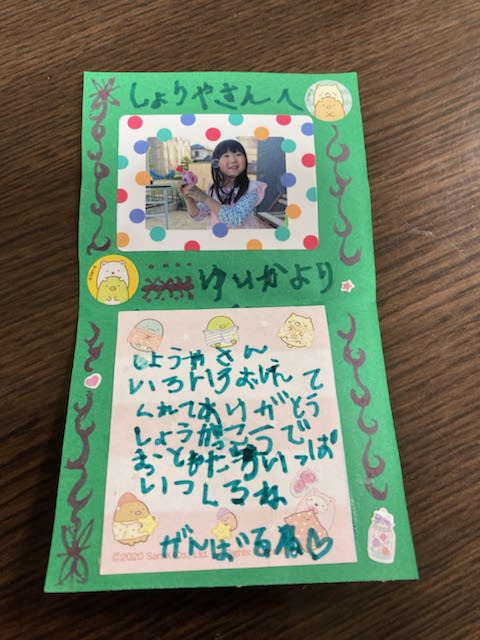 しょりやさんへ
ゆいかより
しょうやさん
いろいろおしえて
くれてありがとう
しょうがっこうで
おともだちいっぱ
いつくるね
がんばるね♡
©2020 San-X Co., Ltd.